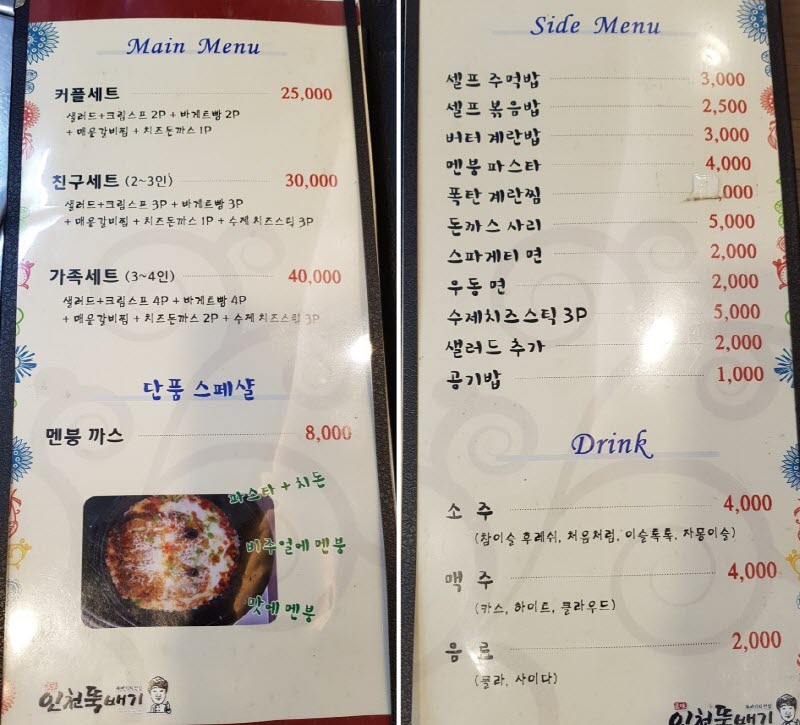 Main Menu
커플세트 25,000
샐러드+크림스프 2P + 바게트빵 2P
+ 매운갈비찜 + 치즈돈까스 1P
친구세트 (2~3인) 30,000
샐러드+크림스프 3P + 바게트빵 3P
+ 매운갈비찜 + 치즈돈까스 1P + 수제 치즈스틱 3P
가족세트 (3~4인) 40,000
샐러드+크림스프 4P + 바게트빵 4P
+ 매운갈비찜 + 치즈돈까스 2P + 수제 치즈스틱 3P
단품 스페샬
멘붕 까스 8,000
파스타 + 치돈
비주얼에 멘붕
맛에 멘붕
인천뚝배기
Side Menu
셀프 주먹밥 3,000
셀프 볶음밥 2,500
버터 계란밥 3,000
멘붕 파스타 4,000
폭탄 계란찜 ,000
돈까스 사리 5,000
스파게티 면 2,000
우동 면 2,000
수제치즈스틱 3P 5,000
샐러드 추가 2,000
공기밥 1,000
Drink
소 주 4,000
(참이슬 후레쉬, 처음처럼, 이슬톡톡, 자몽이슬)
맥 주 4,000
(카스, 하이트, 클라우드)
음 료 2,000
(콜라, 사이다)
인천뚝배기